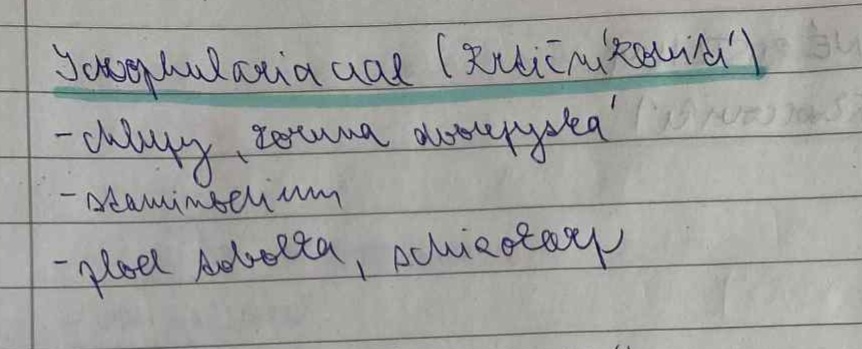 Scrophulariaceae (krtičníkovité)
- chlupy, koruna dvoupyská
- staminodium
- plod tobolka, schizokarp